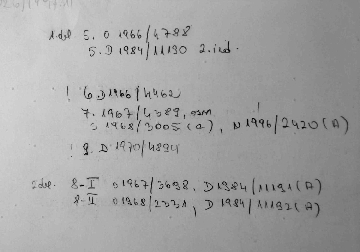 1. del 5. O 1966/4788
5. D 1984/11190 2. ind.
! 6. D 1966/4462
7. 1967/4389, osm
O 1968/3005 (a), N 1996/2420 (A)
! 9. D 1970/4894
2 del. 8-I O 1967/3698, D 1984/11191 (A)
8-II O 1968/2231, D 1984/11192 (A)